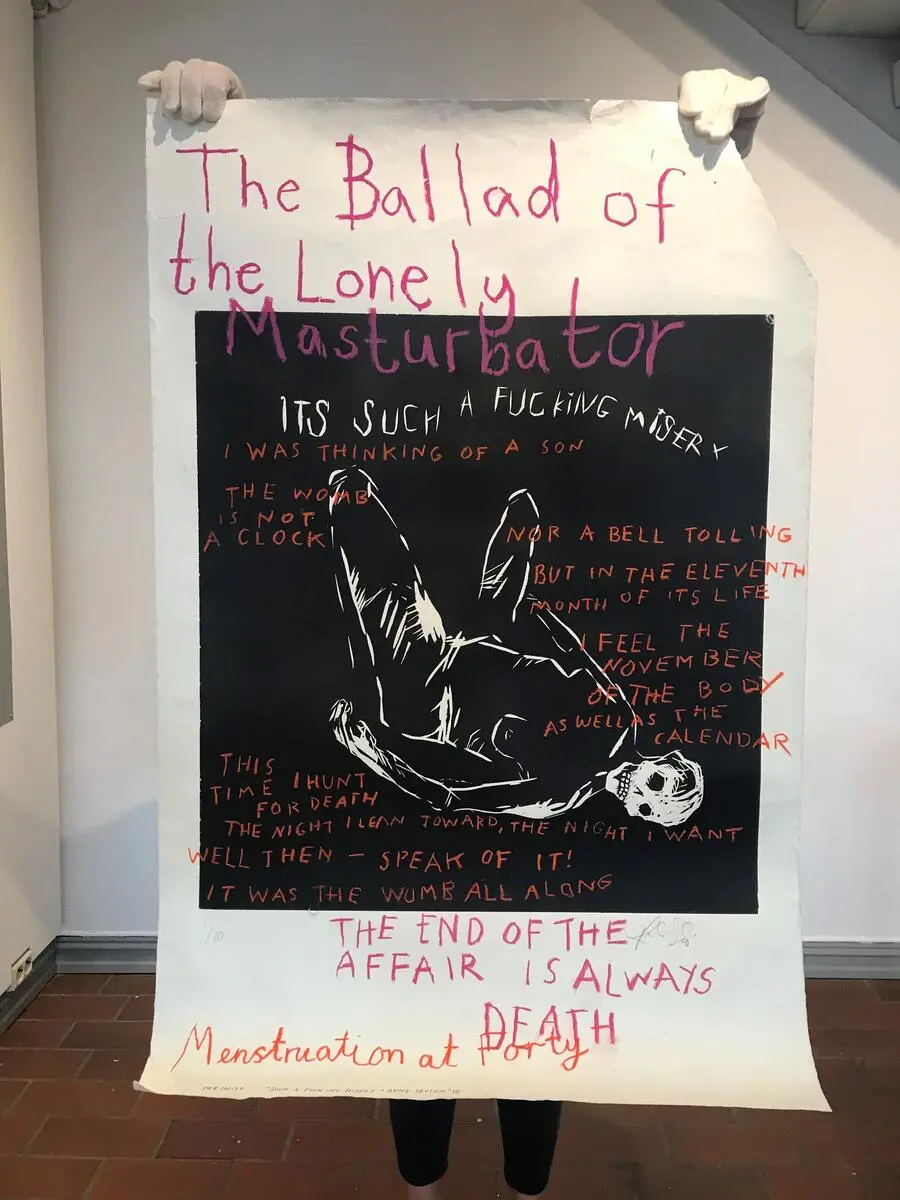 The Ballad of
the Lonely
Masturbator
ITS SUCH A FUCKING MISERY
I WAS THINKING OF A SON
THE WOMB
IS NOT
A CLOCK
NOR A BELL TOLLING
BUT IN THE ELEVENTH
MONTH OF ITS LIFE
I FEEL THE
NOVEMBER
OF THE BODY
AS WELL AS THE
CALENDAR
THIS
TIME I HUNT
FOR DEATH
THE NIGHT I LEAN TOWARD, THE NIGHT I WANT
WELL THEN – SPEAK OF IT!
IT WAS THE WOMB ALL ALONG
1/10
THE END OF THE
AFFAIR IS ALWAYS
DEATH
Menstruation at Forty
"SUCH A FUCKING MISERY - ANNE SEXTON"